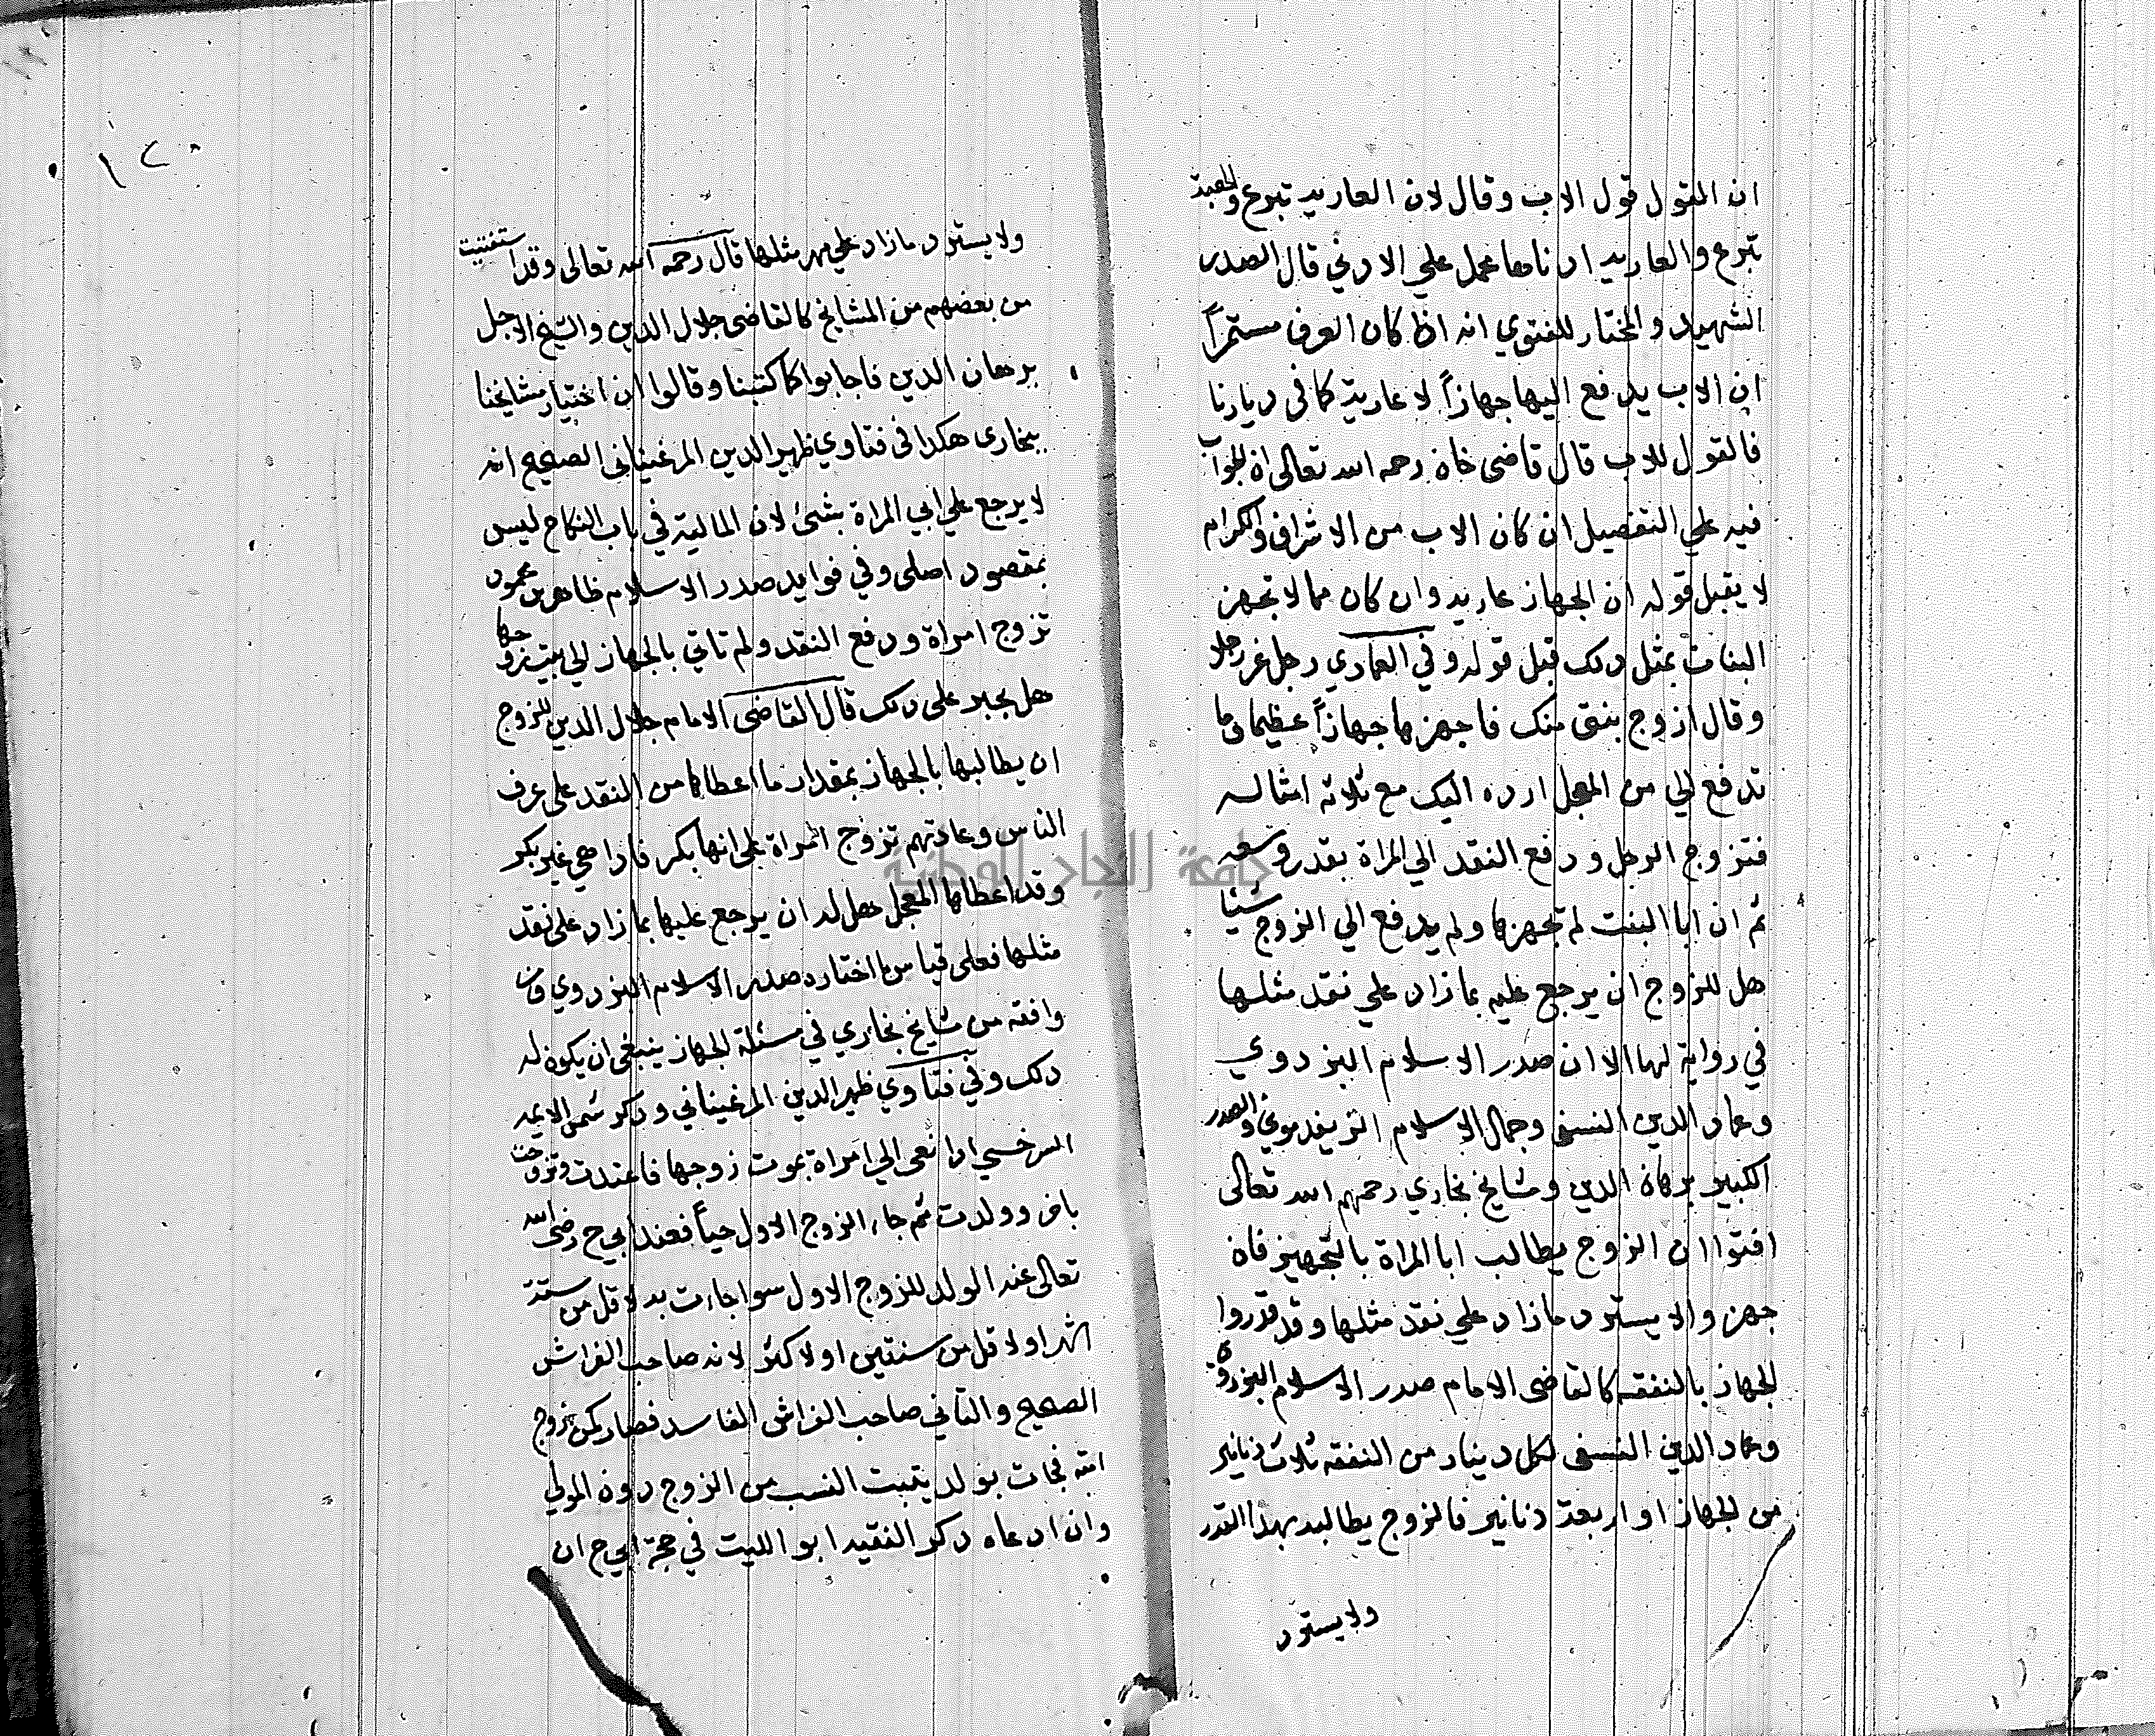 ان القول قول الاب وقال لان العاريه تبرع والهبة
تبرع والعاريه ادناهما عمل علي الادني قال الصدر
الشهيد والمختار للفتوي انه اذا كان العرف مستمراً
ان الاب يدفع اليها جهازاً لا عارية كما في ديارنا
فالقول للاب قال قاضى خان رحمه الله تعالى ان الجواب
فيه علي التفصيل ان كان الاب من الاشراف والكرام
لا يقبل قوله ان الجهاز عاريه وان كان مما لا تجهز
البنات بمثل دلك قبل قوله وفي العمادي رجل غر رجلا
وقال ازوج بنتى منك فاجهزها جهازاً عظيما وما
تدفع الي من المعجل ارده اليك مع ثلاثه امثاله
فتزوج الرجل ودفع النقد الي المراة بقدر وسعه
ثم ان ابا البنت لم تجهزها ولم يدفع الي الزوج شيئا
هل للزوج ان يرجع عليه بما زاد علي نقد مثلها
في رواية لها الا ان صدر الاسلام البزدوي
وعماد الدين النسفى وجمال الاسلام والصدر
الكبير برهان الدين ومشايخ بخاري رحمهم الله تعالى
افتوا ان الزوج يطالب ابا المراة بالتجهيز فان
جهز والا يسترد ما زاد علي نقد مثلها وقد قدروا
الجهاز بالنفقه كالقاضى الامام صدر الاسلام البزدوي
وعماد الدين النسفى لكل دينار من النفقه ثلاث دنانير
من الجهاز او اربعة دنانير فالزوج يطالبه بهذا القدر
ولا يسترد
١٢٠
ولا يسترد ما زاد علي مهر مثلها قال رحمه الله تعالى وقد استفتيت
من بعضهم من المشايخ كالقاضى جلال الدين والشيخ الاجل
برهان الدين فاجابوا كما كتبنا وقالوا ان اختيار مشايخنا
ببخارى هكدا فى فتاوي ظهير الدين المرغينانى الصحيح انه
لا يرجع علي ابي المراة بشئ لان المالية في باب النكاح ليس
بمقصود اصلى وفي فوايد صدر الاسلام طاهر بن محمود
تزوج امراة ودفع النقد ولم تاتي بالجهاز الي بيت زوجها
هل يجبر على دلك قال القاضى الامام جلال الدين للزوج
ان يطالبها بالجهاز بمقدار ما اعطاها من النقد على عرف
الناس وعادتهم تزوج امراة على انها بكر فادا هي غير بكر
وقد اعطاها المعجل هل له ان يرجع عليها بما زاد على نقد
مثلها فعلى قياس ما اختاره صدر الاسلام البزدوي فان
وافقه من مشايخ بخاري في مسئلة الجهاز ينبغى ان يكون له
دلك وفي فتاوي ظهير الدين المرغيناني ودكر شمس الايمه
السرخسي ادا نعى الي امراة بموت زوجها فاعتدت وتزوجت
باخر وولدت ثم جاء الزوج الاول حياً فعند ابي ح رضى الله
تعالى عنه الولد للزوج الاول سوا جاءت به لاقل من ستة
اشهر او لاقل من سنتين او لاكثر لانه صاحب الفراش
الصحيح والثاني صاحب الفراش الفاسد فصار كمن زوج
امته فجات بولد يثبت النسب من الزوج دون المولي
وان ادعاه دكر الفقيه ابو الليث في حجة ابي ح ان
جامعة النجاح الوطنية